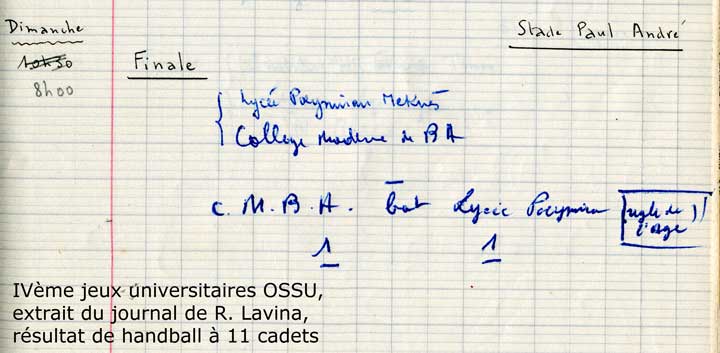 Dimanche
Stade Paul André
10h30
Finale
8h00
Lycée Poeymirau Meknès
College Moderne de BA
C. M. B. A. bat Lycée Poeymirau (règle de l'âge)
1 1
IVème jeux universitaires OSSU,
extrait du journal de R. Lavina,
résultat de handball à 11 cadets